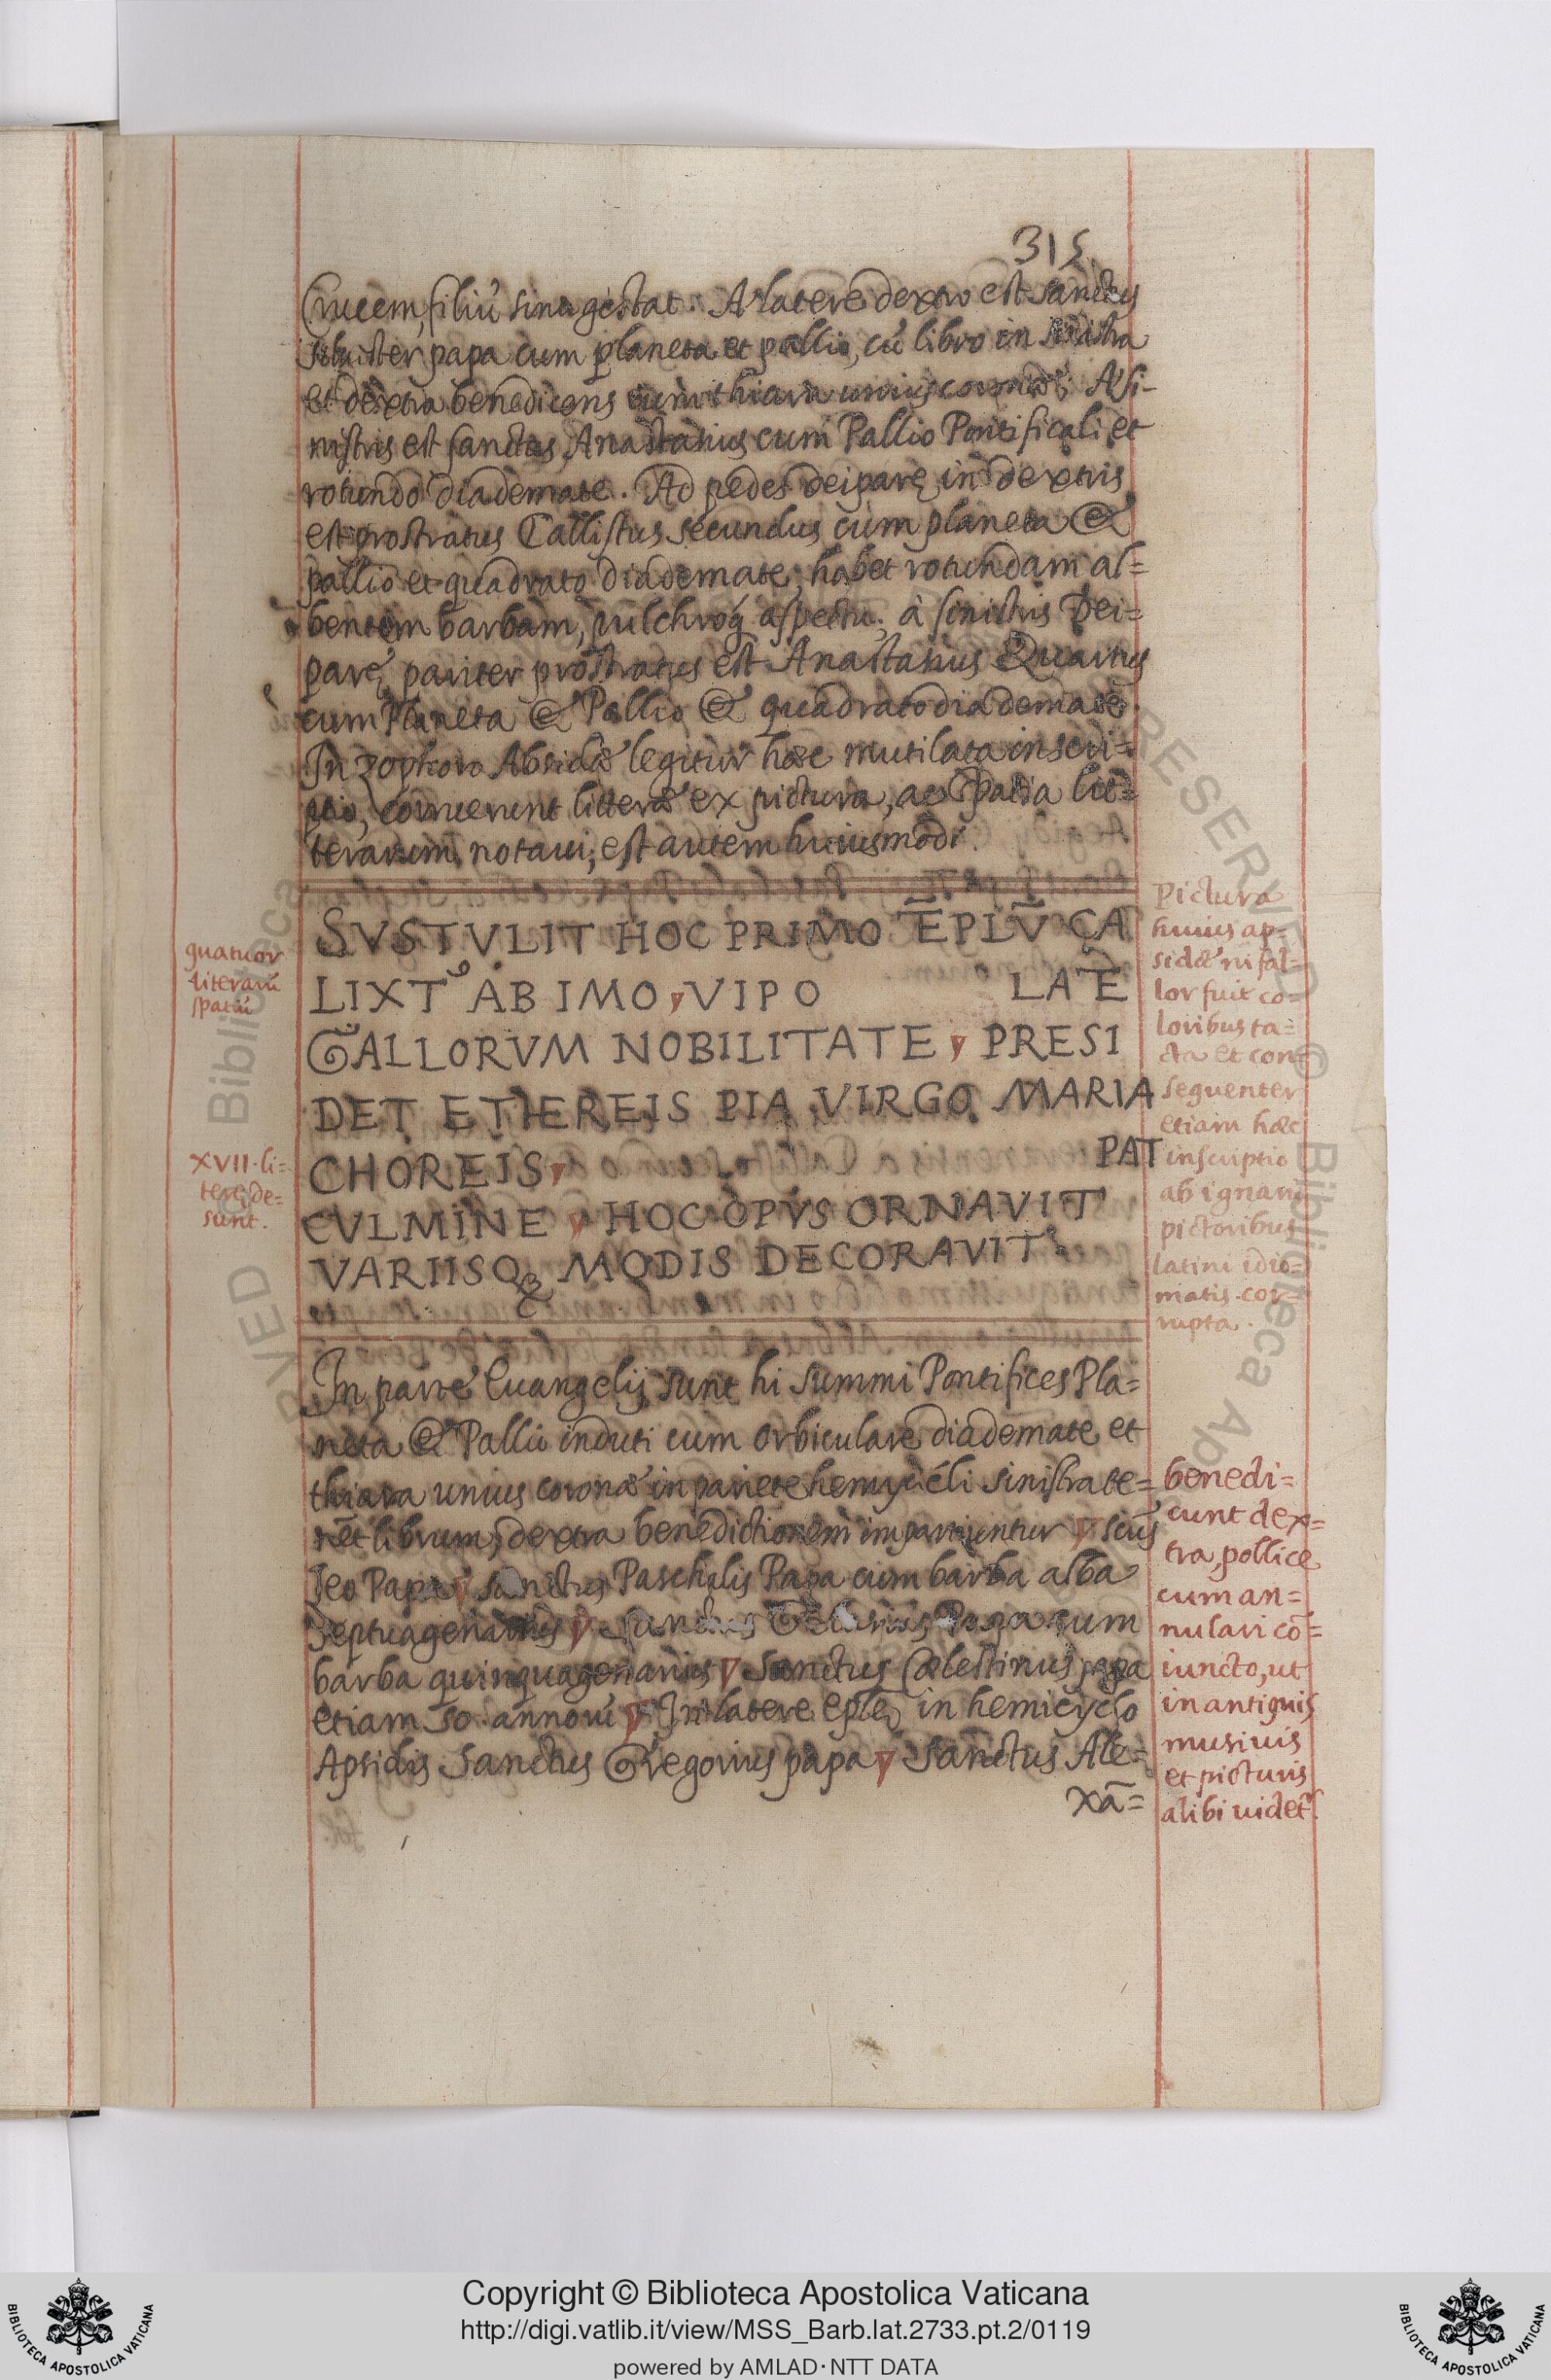 315.
Crucem, filiũ sinu gestat. A latere dextro est sanctus
siluister papa cum planeta et pallio, cũ libro in sinistra
et dextra benedicens cum thiara unius coronæ; A si-
nistris est sanctus Anastasius cum Pallio Pontificali et
rotundo diademate. Ad pedes deiparę in dextris
est prostratus Callistus secundus cum planeta &
pallio et quadrato diademate, habet rotundam al=
bentem barbam, pulchroq́ aspectu; à sinistris Dei=
parę pariter prostratus est Anastasius Quartus
cum Planeta & Pallio & quadrato diademate
In zophoro Absidæ legitur hæc mutilata inscri=
ptio, corruerunt litteræ ex pictura, ac spatia lit=
terarum notaui; est autem huiusmodi.
SVSTVLIT HOC PRIMO T̄EPLV̄ CA
LIXTꝰ AB IMO VIPO LATE
GALLORVM NOBILITATE PRESI
DET ETHEREIS PIA VIRGO MARIA
CHOREIS PAT
CVLMINE HOC OPVS ORNAVIT
VARIISQ& MODIS DECORAVIT
quatuor
literarũ
spatiũ
XVII. li=
terę de=
sunt.
Pictura
huius ap=
sidæ ni fal=
lor fuit co=
loribus ta=
cta et con=
sequenter
etiam hæc
inscriptio
ab ignaris
pictoribus
latini idio=
matis cor=
rupta.
In parte Euangelij sunt hi summi Pontifices Pla=
neta & Pallio induti cum orbiculare diademate et
thiara unius coronæ in pariete hemycicli sinistra te=
nẽt librum, dextra benedictionem impartiuntur scũs
leo Papa sanctus Paschalis Papa cum barba alba
septuagenarius Sanctus Gelasius Papa cum
barba quinquagenarius Sanctus Cælestinus papa
etiam 50. annorũ In latere eplę in hemicyclo
Apsidis Sanctus Gregorius papa Sanctus Ale=
xã=
benedi=
cunt dex=
tra, pollice
cum an=
nulari cõ=
iuncto, ut
in antiquis
musiuis
et picturis
alibi uidet̃.
Copyright © Biblioteca Apostolica Vaticana
http://digi.vatlib.it/view/MSS_Barb.lat.2733.pt.2/0119
powered by AMLAD·NTT DATA
BIBLIOTECA APOSTOLICA VATICANA
BIBLIOTECA APOSTOLICA VATICANA